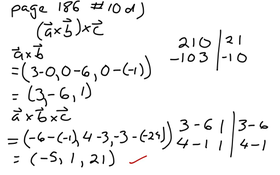 page 186 #10 d)
(a⃗×b⃗)×c⃗
a⃗×b⃗
=(3-0,0-6,0-(-1))
=(3,-6,1)
a⃗×b⃗×c⃗
=(-6-(-1),4-3,-3-(-24))
=(-5,1,21) ✓
210 | 21
-103 | -10
3-61 | 3-6
4-11 | 4-1